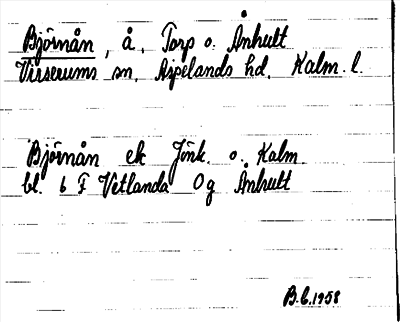 Björnån, å, Torp o. Ånhult
Virserums sn, Aspelands hd, Kalm. l.
Björnån ek Jönk. o. Kalm
bl. 6 F Vetlanda Og Ånhult
B.G.1958